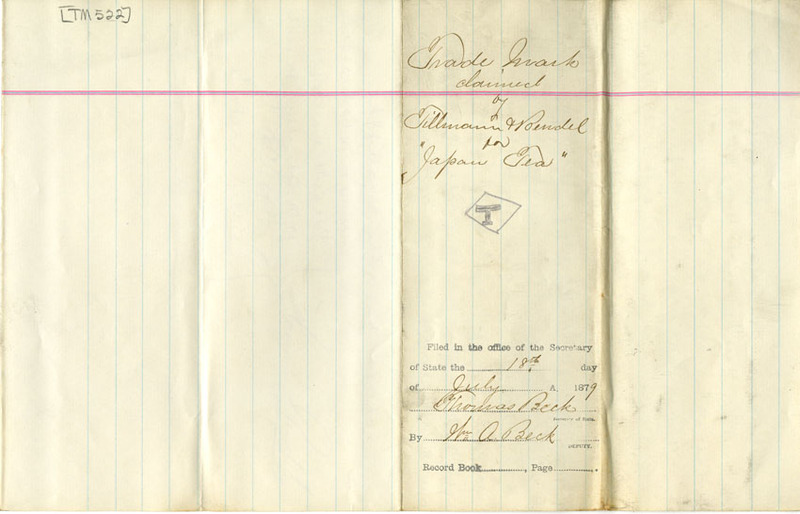 [TM522]
Trade Mark
claimed
by
Tillmann & Bendel
for
"Japan Tea"
T
Filed in the office of the Secretary
of State the 18th day
of July A. 1879
Thomas Beck
Secretary of State.
By Wm A. Beck
DEPUTY.
Record Book , Page .